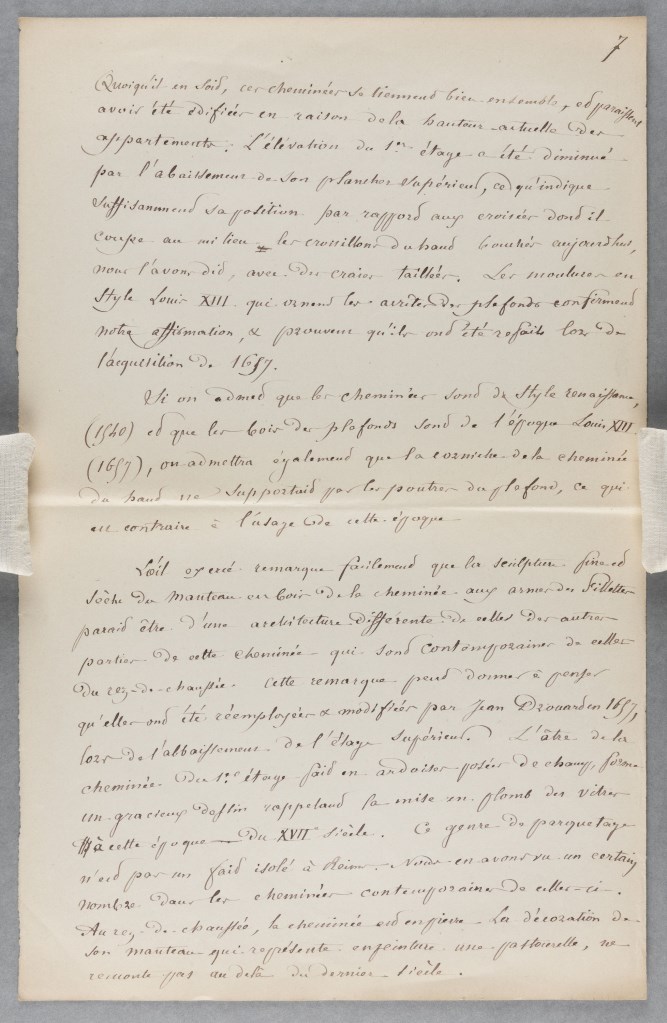 7
Quoiqu'il en soit, ces cheminées se tiennent bien ensemble, et paraissent
avoir été édifiées en raison de la hauteur actuelle des
appartements. L'élévation du 1er étage a été diminué
par l'abaissement de son plancher supérieur, ce qu'indique
suffisamment sa position par rapport aux croisées dont il
coupe au milieu les croisillons du haut bouchés aujourdhui,
nous l'avons dit, avec des craies taillées. Les moulures en
style Louis XIII qui ornent les arrêtes des plafonds confirment
notre affirmation, & prouvent qu'ils ont été refaits lors de
l'acquisition de 1657.
Si on admet que les cheminées sont de style renaissance,
(1540) et que les bois des plafonds sont de l'époque Louis XIII
(1657), on admettra également que la corniche de la cheminée
du haut ne supportait pas les poutres du plafond, ce qui
est contraire à l'usage de cette époque
L'œil exercé remarque facilement que la sculpture fine et
sèche du manteau en bois de la cheminée aux armes des Fillette
parait être d'une architecture différente de celles des autres
parties de cette cheminée qui sont contemporaines de celles
du rez-de-chaussée. Cette remarque peut donner à penser
qu'elles ont été réemployées & modifiées par Jean Drouard en 1657,
lors de l'abaissement de l'étage supérieur. L'âtre de la
cheminée du 1er étage fait en ardoises posées de champ, forme
un gracieux dessin rappelant la mise en plomb des vitres
à cette époque du XVIIe siècle. Ce genre de parquetage
n'est pas un fait isolé à Reims. Nous en avons vu un certain
nombre dans les cheminées contemporaines de celles-ci.
Au rez-de-chaussée, la cheminée est en pierre. La décoration de
son manteau qui représente en peinture une pastourelle, ne
remonte pas au delà du dernier siècle.